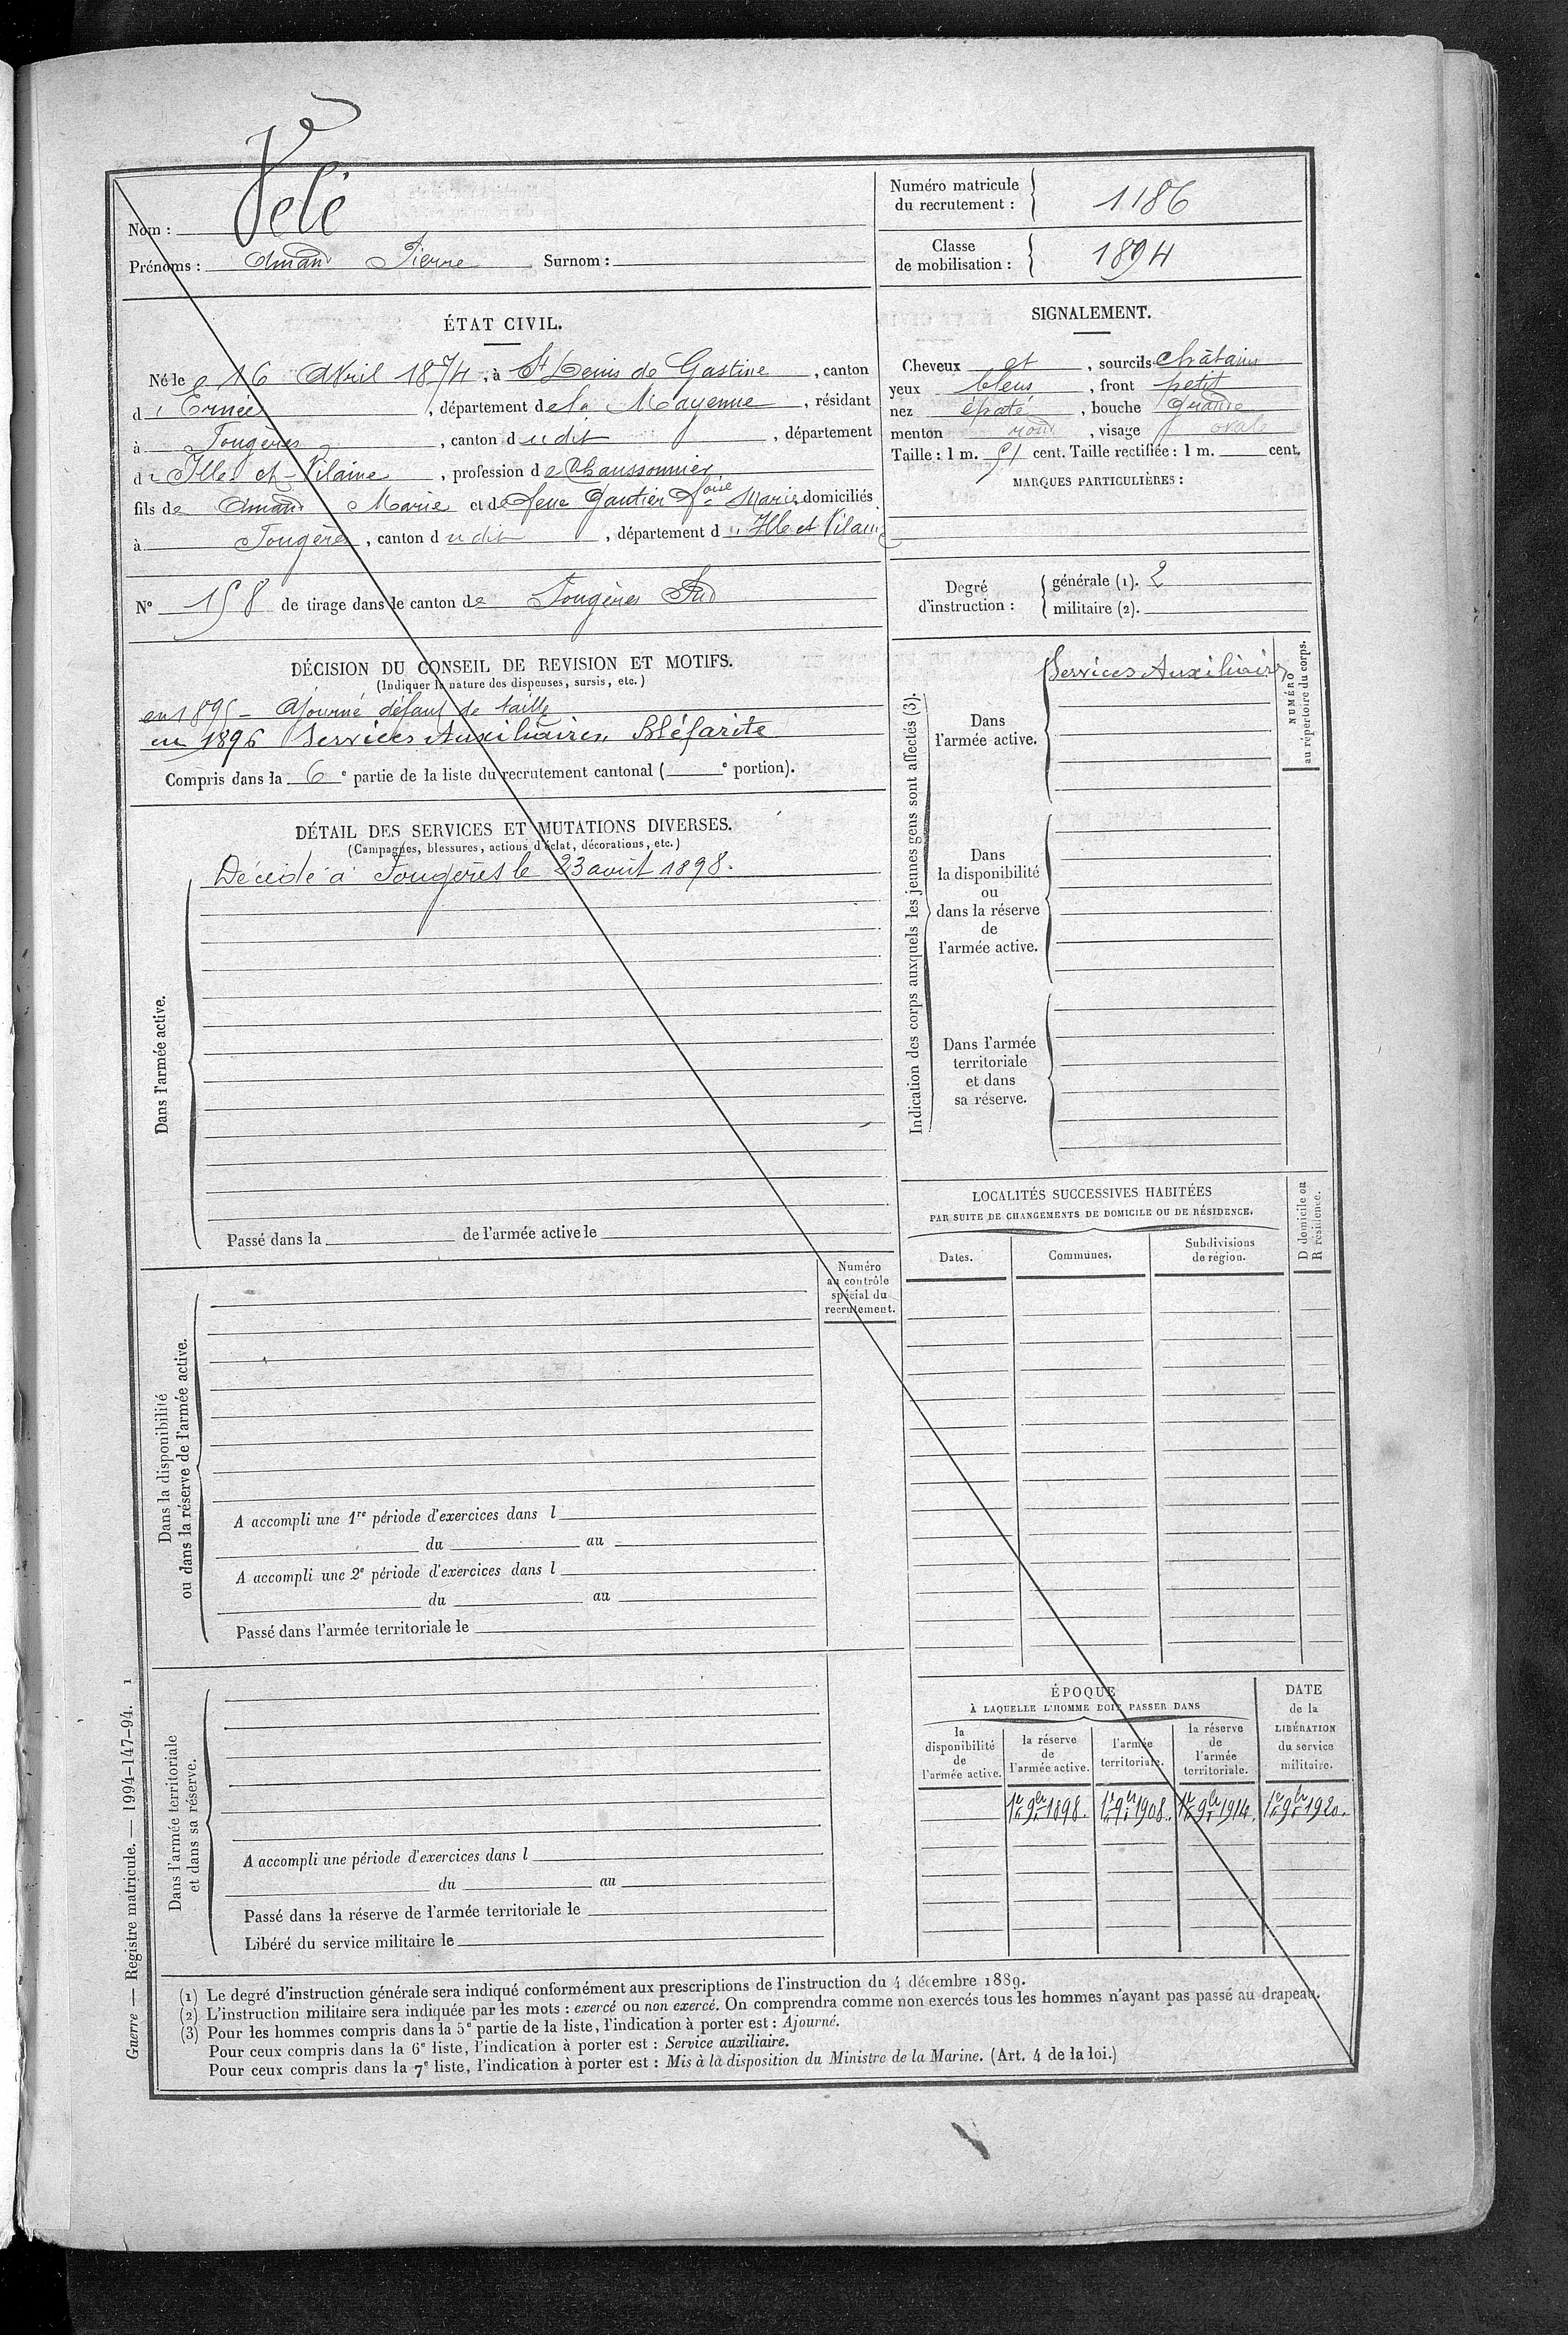 Nom : Velé
Prénoms : Amand Pierre Surnom :
Numéro matricule
du recrutement : 1186
Classe
de mobilisation : 1894
ÉTAT CIVIL.
Né le 16 Avril 1874, à St Denis de Gastine, canton
d'Ernée, département de la Mayenne, résidant
à Fougères, canton dudit, département
d'Ille et Vilaine, profession de Chaussonnier
fils de Amand Marie et de feue Gautier Marie domiciliés
à Fougères, canton dudit, département d'Ille et Vilaine
N° 158 de tirage dans le canton de Fougères Sud
SIGNALEMENT.
Cheveux et, sourcils châtains
yeux bleus, front petit
nez épaté, bouche grande
menton rond, visage ovale
Taille : 1 m. 51 cent. Taille rectifiée : 1 m. cent.
MARQUES PARTICULIÈRES :
Degré
d'instruction :
générale (1). 2
militaire (2).
DÉCISION DU CONSEIL DE REVISION ET MOTIFS.
(Indiquer la nature des dispenses, sursis, etc.)
en 1895 - Ajourné défaut de taille
en 1896 Services Auxiliaires Bléfarite
Compris dans la 6e partie de la liste du recrutement cantonal ( e portion).
DÉTAIL DES SERVICES ET MUTATIONS DIVERSES.
(Campagnes, blessures, actions d'éclat, décorations, etc.)
Dans l'armée active.
Décédé à Fougères le 23 août 1898.
Passé dans la de l'armée active le
Indication des corps auxquels les jeunes gens sont affectés (3).
Dans
l'armée active.
Services Auxiliaires
NUMÉRO
au répertoire du corps.
Dans
la disponibilité
ou
dans la réserve
de
l'armée active.
Dans l'armée
territoriale
et dans
sa réserve.
LOCALITÉS SUCCESSIVES HABITÉES
PAR SUITE DE CHANGEMENTS DE DOMICILE OU DE RÉSIDENCE.
Dates.
Communes.
Subdivisions
de région.
D domicile ou
R résidence.
Numéro
au contrôle
spécial du
recrutement.
Dans la disponibilité
ou dans la réserve de l'armée active.
A accompli une 1re période d'exercices dans l
du au
A accompli une 2e période d'exercices dans l
du au
Passé dans l'armée territoriale le
Dans l'armée territoriale
et dans sa réserve.
A accompli une période d'exercices dans l
du au
Passé dans la réserve de l'armée territoriale le
Libéré du service militaire le
ÉPOQUE
À LAQUELLE L'HOMME DOIT PASSER DANS
la
disponibilité
de
l'armée active.
la réserve
de
l'armée active.
l'armée
territoriale.
la réserve
de
l'armée
territoriale.
DATE
de la
LIBÉRATION
du service
militaire.
1er 9bre 1898. 1er 9bre 1908. 1er 9bre 1914. 1er 9bre 1920.
(1) Le degré d'instruction générale sera indiqué conformément aux prescriptions de l'instruction du 4 décembre 1889.
(2) L'instruction militaire sera indiquée par les mots : exercé ou non exercé. On comprendra comme non exercés tous les hommes n'ayant pas passé au drapeau.
(3) Pour les hommes compris dans la 5e partie de la liste, l'indication à porter est : Ajourné.
Pour ceux compris dans la 6e liste, l'indication à porter est : Service auxiliaire.
Pour ceux compris dans la 7e liste, l'indication à porter est : Mis à la disposition du Ministre de la Marine. (Art. 4 de la loi.)
Guerre — Registre matricule. — 1994-147-94. 1